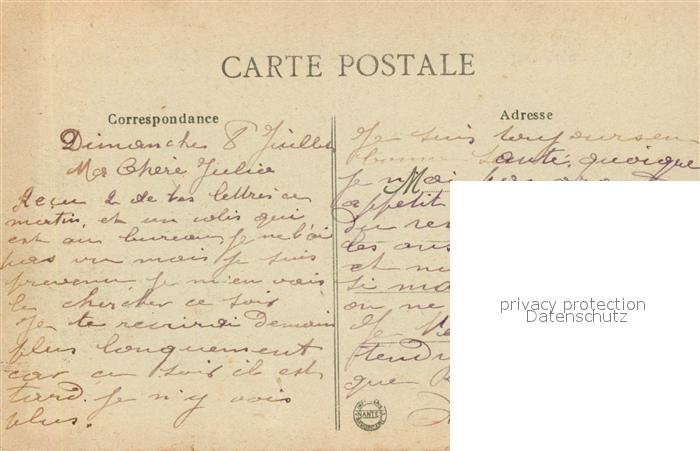 CARTE POSTALE
Correspondance
Dimanche 8 Juillet
Ma Chère Julie
Reçu 2 de tes lettres ce
matin, et un colis qui
est au bureau, je ne l'ai
pas vu mais je suis
prevenu je m'en vais
le chercher ce soir
Je te recrirai Demain
plus longuement
car ce soir il est
tard. Je n'y vois
plus.
Adresse
Je suis toujours en
bonne santé, quoique
je n'ai pas
M
appetit
du
les
et
si
on ne
Je
tendr
que
NANTES
privacy protection
Datenschutz